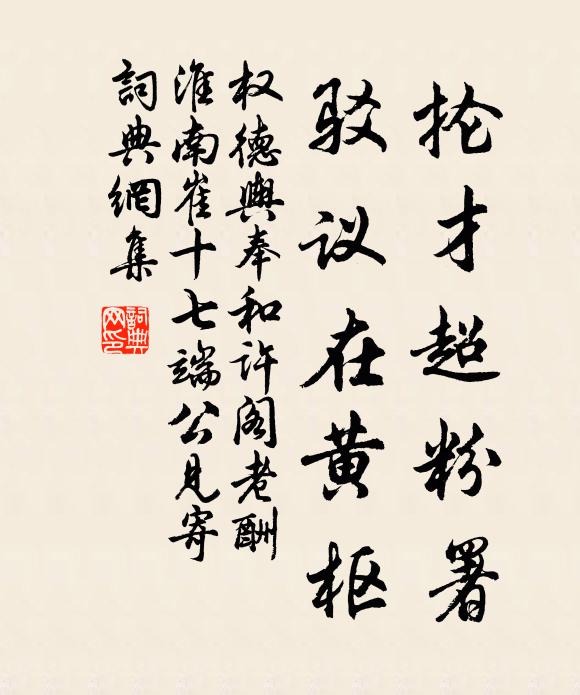 抡才超粉署
驳议在黄枢
权德舆奉和许阁老酬
淮南崔十七端公见寄
词典网集
詞典
网印